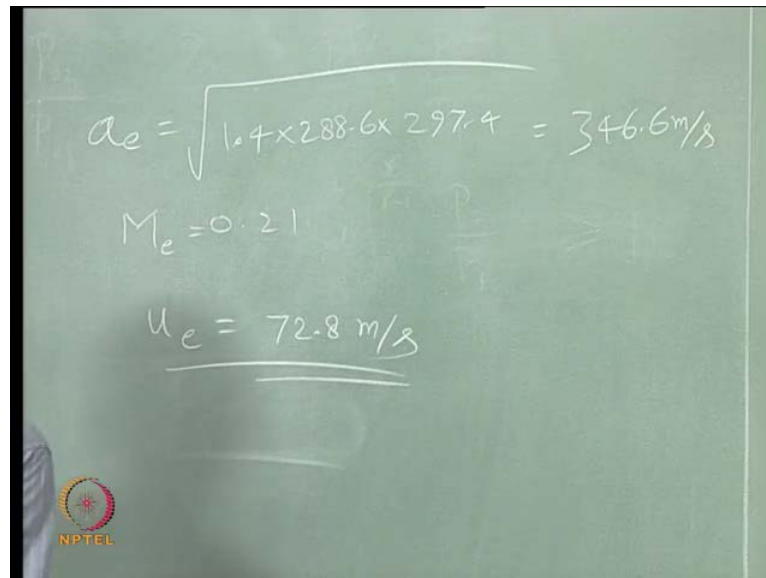 a_e = √1.4×288.6×297.4 = 346.6 m/s
M_e = 0.21
u_e = 72.8 m/s
NPTEL